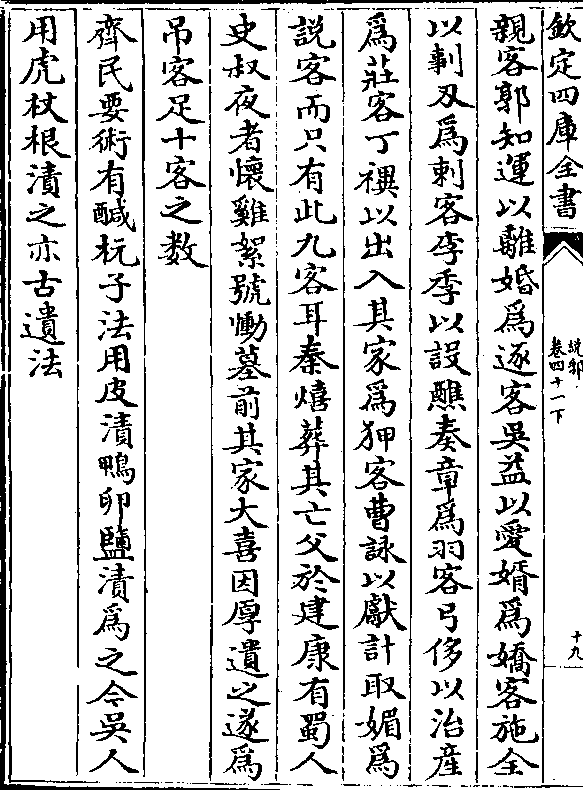 欽定四庫全書
說郛
卷四十一下
十九
親客郭知運以離婚為逐客吳益以愛婿為嬌客施全
以剚刃為刺客李季以設醮奏章為羽客弓侈以治産
為莊客丁禩以出入其家為狎客曹詠以獻計取媚為
說客而只有此九客耳秦熺葬其亡父於建康有蜀人
史叔夜者懷雞絮號慟墓前其家大喜因厚遺之遂為
弔客足十客之數
齊民要術有鹹杬子法用皮漬鴨卵鹽漬為之今吳人
用虎杖根漬之亦古遺法